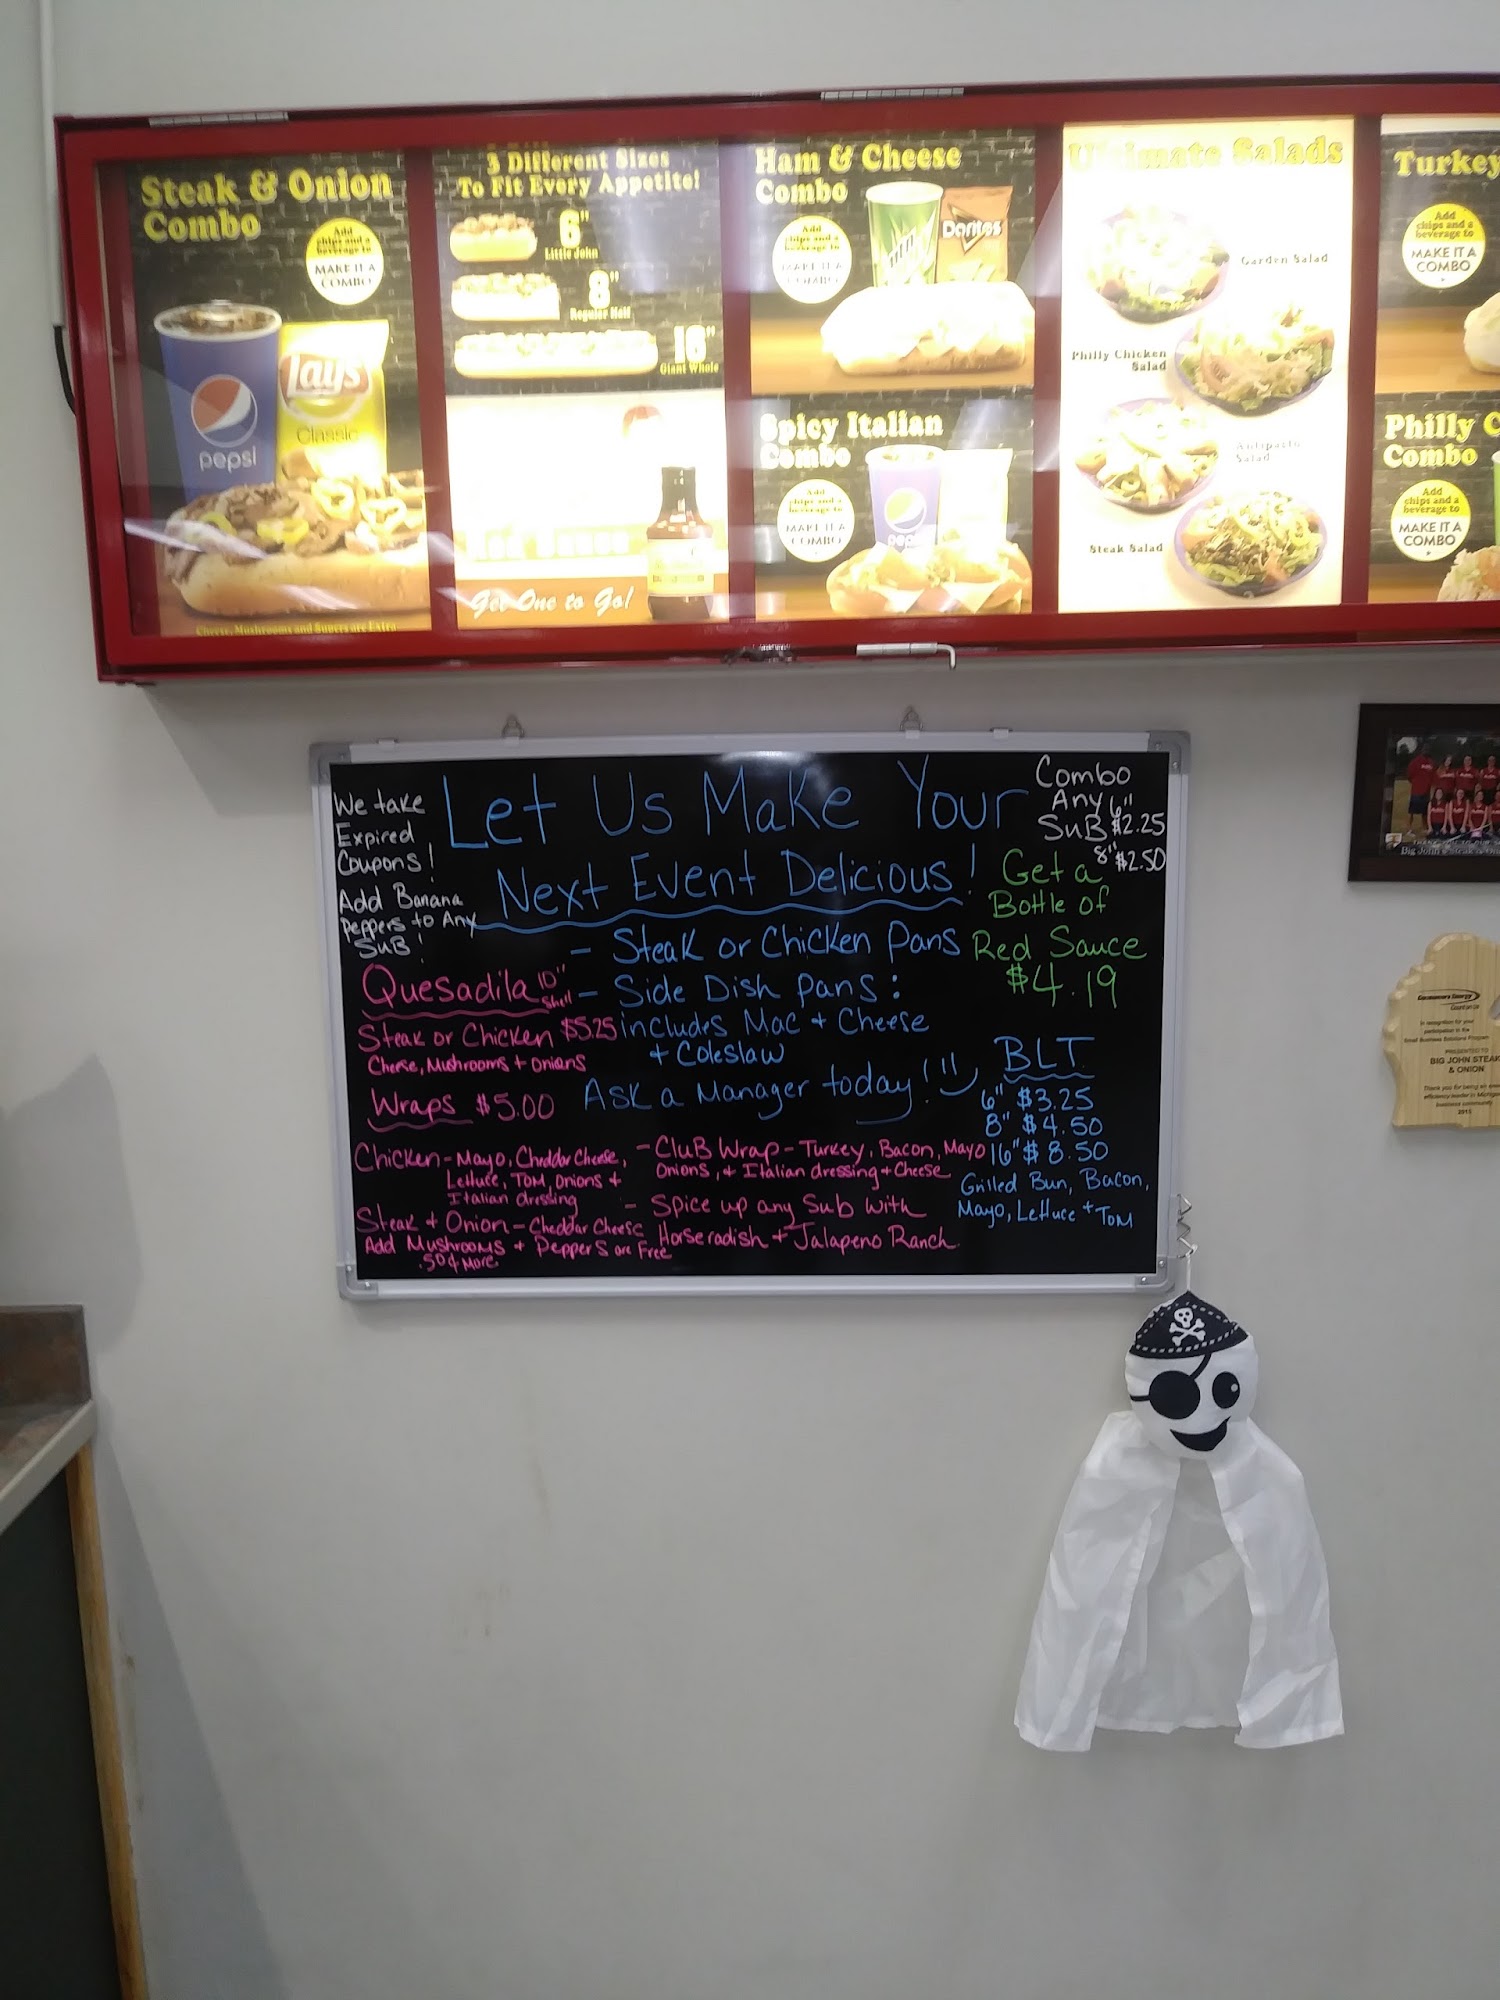 Steak & Onion
Combo
Add
chips and a
beverage to
MAKE IT A
COMBO
pepsi
Lay's
Classic
Cheese, Mushrooms and Supers are Extra
3 Different Sizes
To Fit Every Appetite!
6"
Little John
8"
Regular Half
16"
Giant Whole
Red Sauce
Get One to Go!
Ham & Cheese
Combo
Add
chips and a
beverage to
MAKE IT A
COMBO
Doritos
Spicy Italian
Combo
Add
chips and a
beverage to
MAKE IT A
COMBO
pepsi
Ultimate Salads
Garden Salad
Philly Chicken
Salad
Antipasto
Salad
Steak Salad
Turkey
Add
chips and a
beverage to
MAKE IT A
COMBO
Philly C
Combo
Add
chips and a
beverage to
MAKE IT A
COMBO
We take
Expired
Coupons!
Add Banana
Peppers to Any
SuB!
Let Us Make Your
Next Event Delicious!
- Steak or Chicken Pans
- Side Dish Pans:
includes Mac + Cheese
+ Coleslaw
Ask a Manager today!
Combo
Any
SuB
6" $2.25
8" $2.50
Get a
Bottle of
Red Sauce
$4.19
Quesadilla 10"
Shell
Steak or Chicken $5.25
Cheese, Mushrooms + Onions
Wraps $5.00
Chicken - Mayo, Cheddar Cheese,
Lettuce, Tom, Onions +
Italian dressing
Steak + Onion - Cheddar Cheese
Add Mushrooms + Peppers are Free
.50¢ More
- CluB Wrap - Turkey, Bacon, Mayo
Onions, + Italian dressing + Cheese
- Spice up any Sub with
Horseradish + Jalapeno Ranch
BLT
6" $3.25
8" $4.50
16" $8.50
Grilled Bun, Bacon,
Mayo, Lettuce + Tom
Big John's Steak & On
Consumers Energy
Count on Us
In recognition for your
participation in the
Small Business Solutions Program
PRESENTED TO
BIG JOHN STEAK
& ONION
Thank you for being an ene
efficiency leader in Michigan
business community